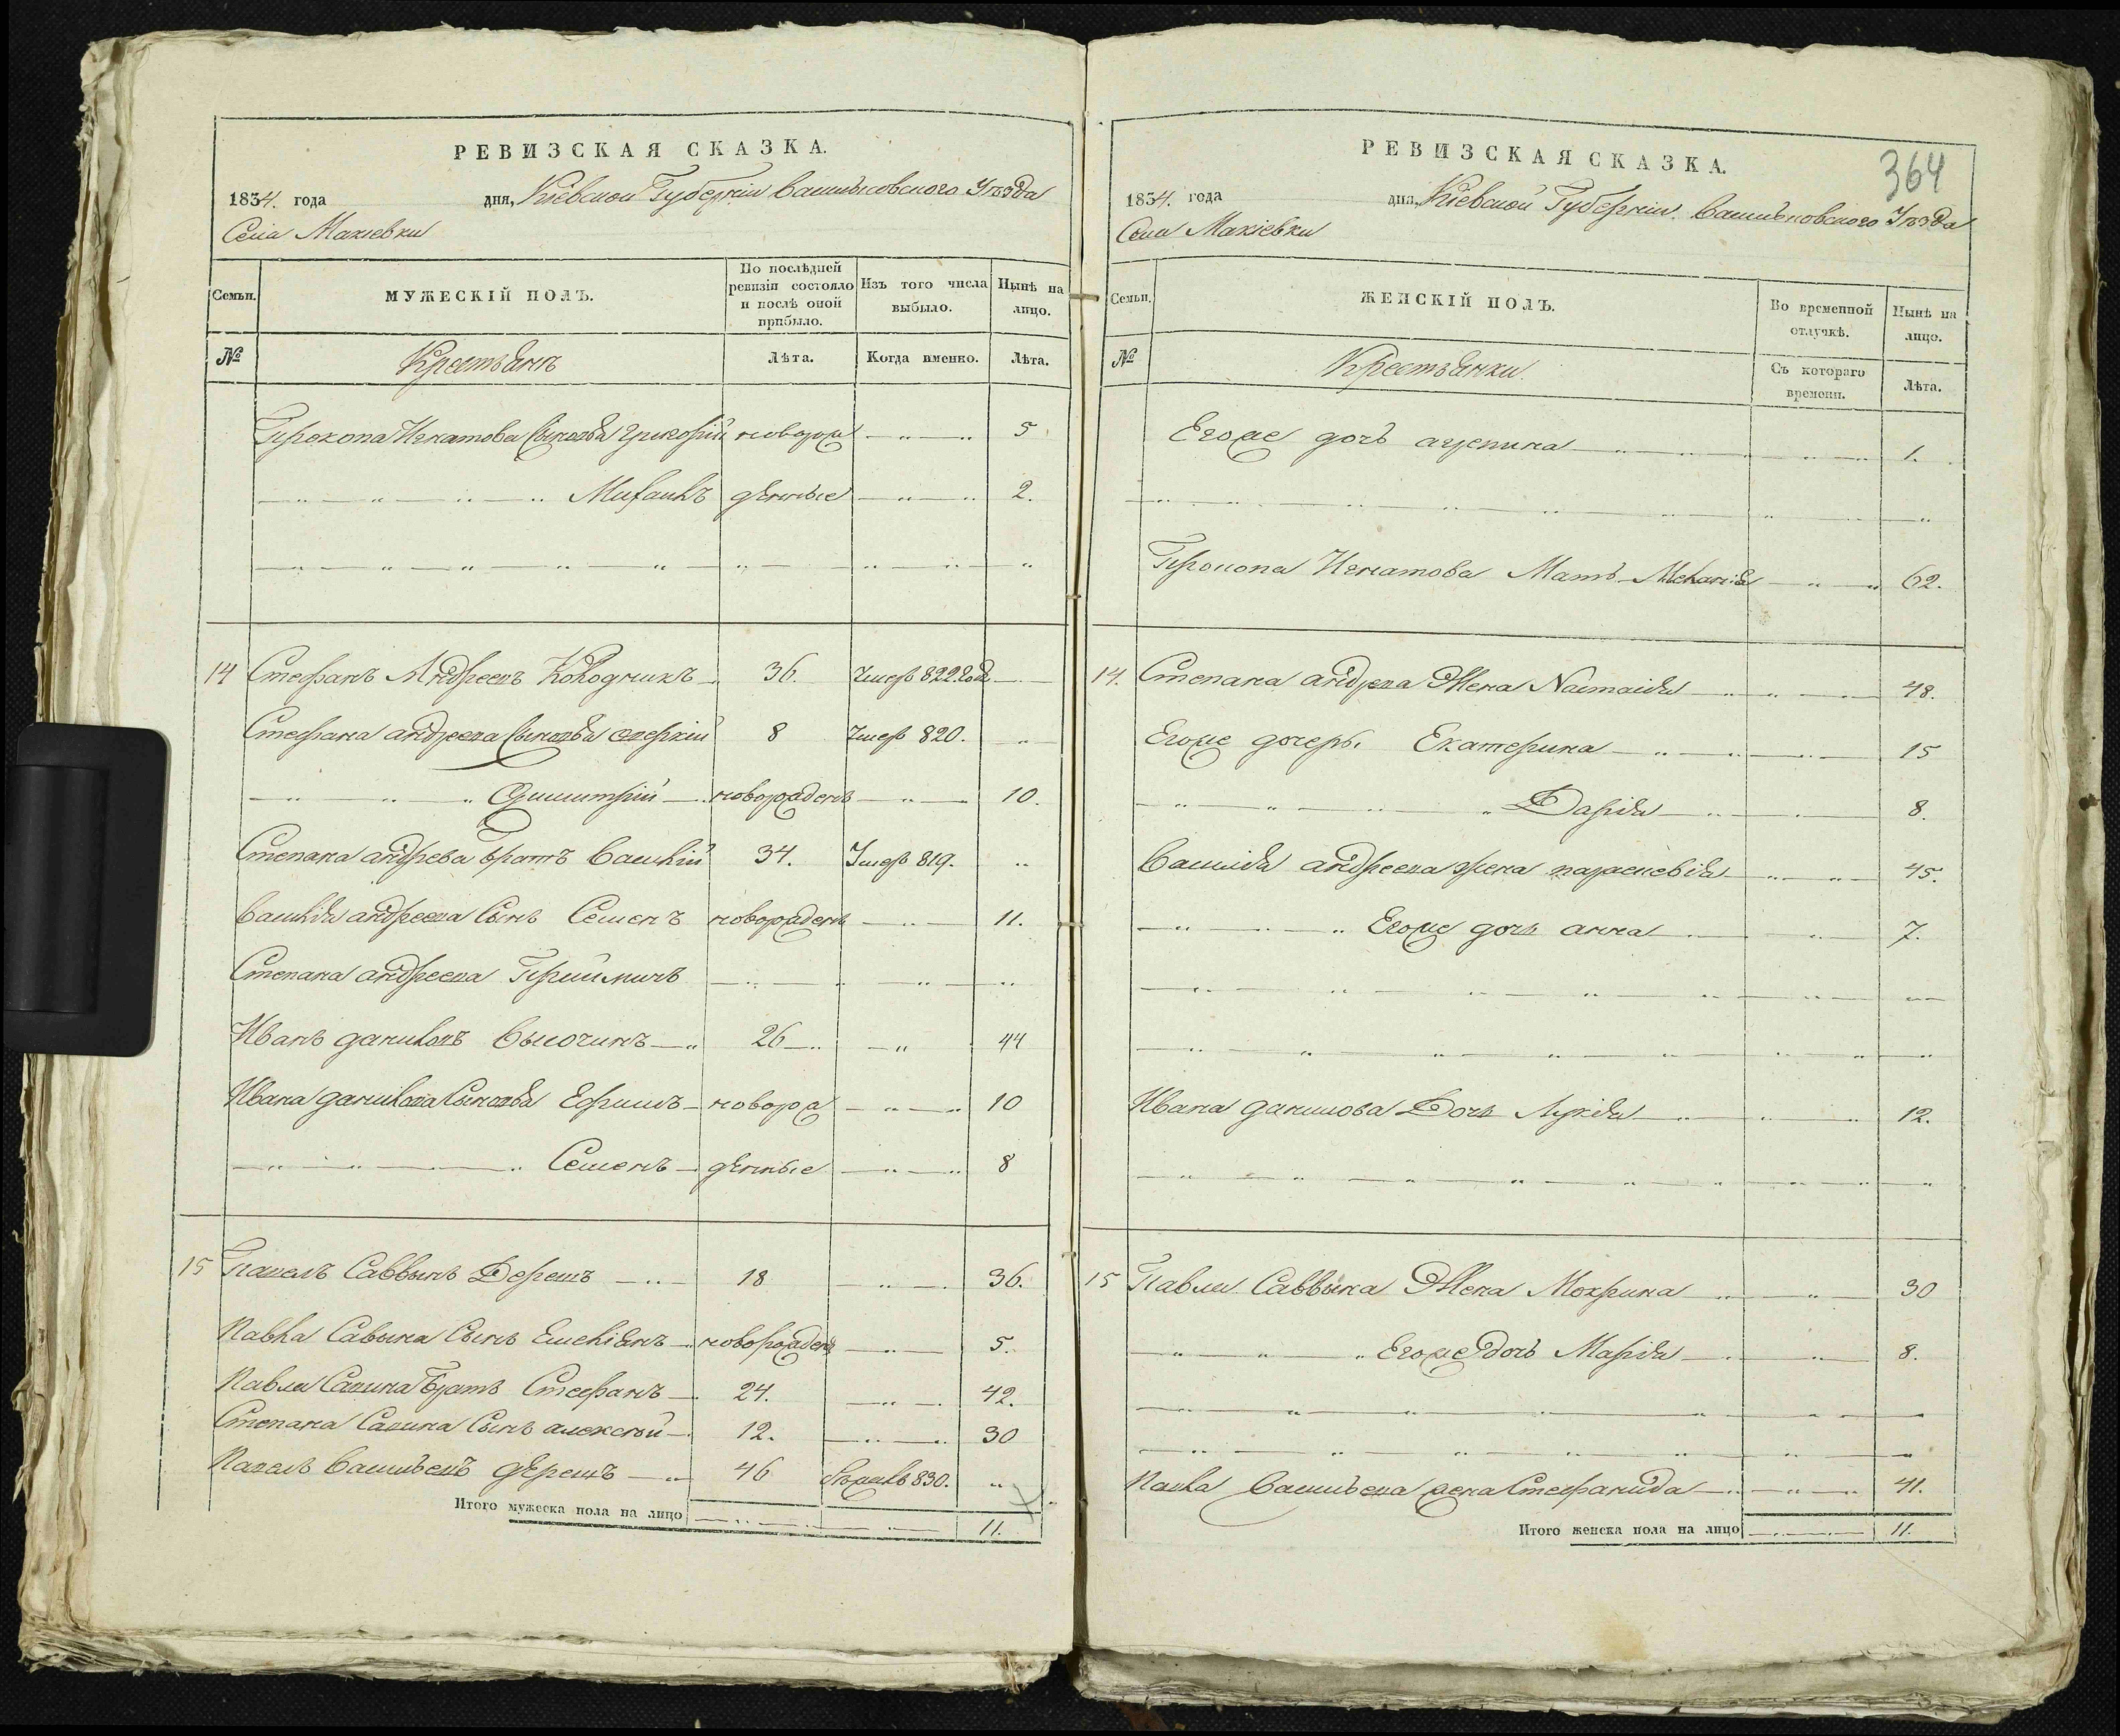 РЕВИЗСКАЯ СКАЗКА.
1834. года дня, Кіевской Губерніи Васильковского Уѣзда
Села Макіевки
Семьи. МУЖЕСКІЙ ПОЛЪ. По послѣдней ревизіи состояло и послѣ оной прибыло. Изъ того числа выбыло. Нынѣ на лицо.
№ Крестьянъ Лѣта. Когда именно. Лѣта.
Прокопа Игнатова Сыновья Григорій новорож 5
Михаилъ денные 2.
14 Стефанъ Андреевъ Колодникъ 36. Умеръ 822. года
Стефана андреева Сыновья 8 Умеръ 820.
Димитрій новорожденъ 10.
Степана андрева братъ Василій 34. Умеръ 819.
Василія андреева Сынъ Семенъ новорожденъ 11.
Степана андреева Пріймичь
Иванъ даниловъ 26 44
Ивана данилова Сыновья Ефимъ новорож 10
Семенъ денные 8
15 Павелъ Саввинъ Дерешъ 18 36.
Павла Савына Сынъ Емеліянъ новорожденъ 5.
Павла Савина братъ Стефанъ 24. 42.
Степана Савина Сынъ алексѣй 12. 30
Павелъ Васильевъ дерешъ 46 830.
Итого мужеска пола на лицо 11.
364
РЕВИЗСКАЯ СКАЗКА.
1834. года дня, Кіевской Губерніи Васильковского Уѣзда
Села Макіевки
Семьи. ЖЕНСКІЙ ПОЛЪ. Во временной отлучкѣ. Нынѣ на лицо.
№ Крестьянки. Съ котораго времени. Лѣта.
Егоже дочь 1.
Прокопа Игнатова Мать Меланія 62.
14. Степана андреева Жена Настасія 48.
Егоже дочеры Екатерина 15
Дарія 8.
Василія андреева жена параскевія 45.
Егоже дочь анна 7.
Ивана данилова Дочь Лукія 12.
15 Павла Саввына Жена Мокрина 30
Егоже дочь Марія 8.
Павла Васильева жена Стефанида 41.
Итого женска пола на лицо 11.